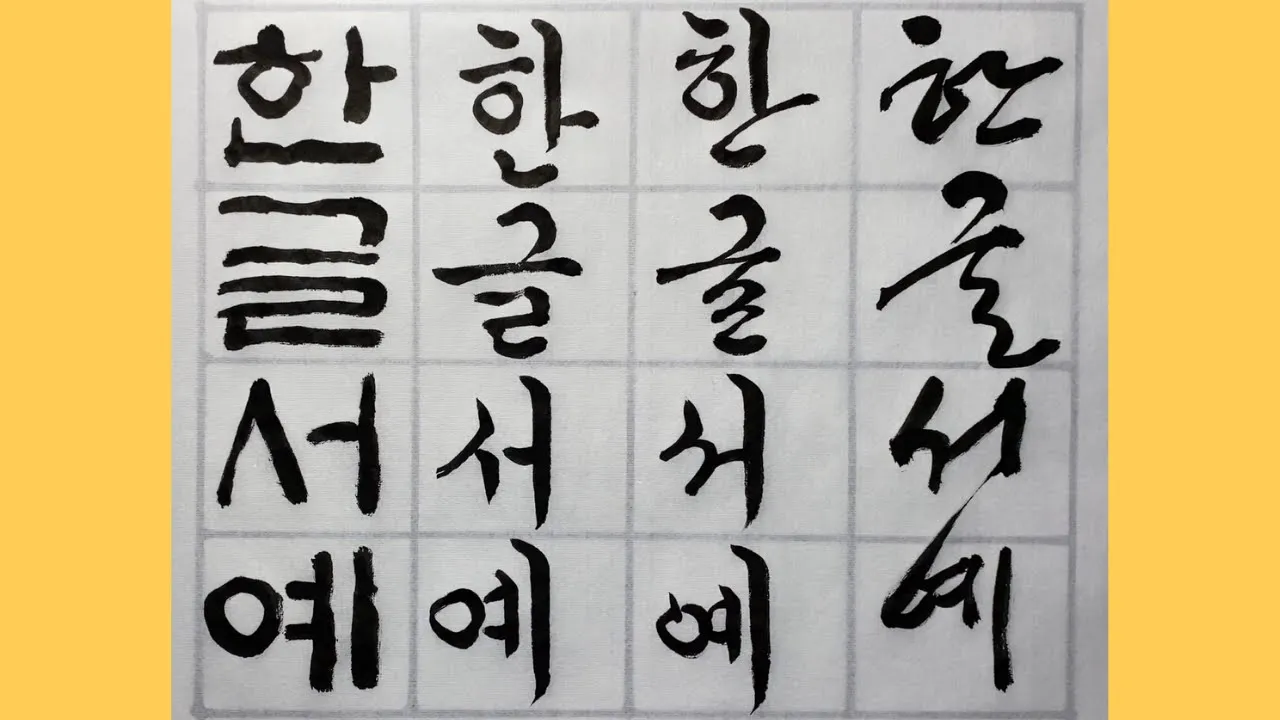 한글서예
한글서예
한글서예
한글서예